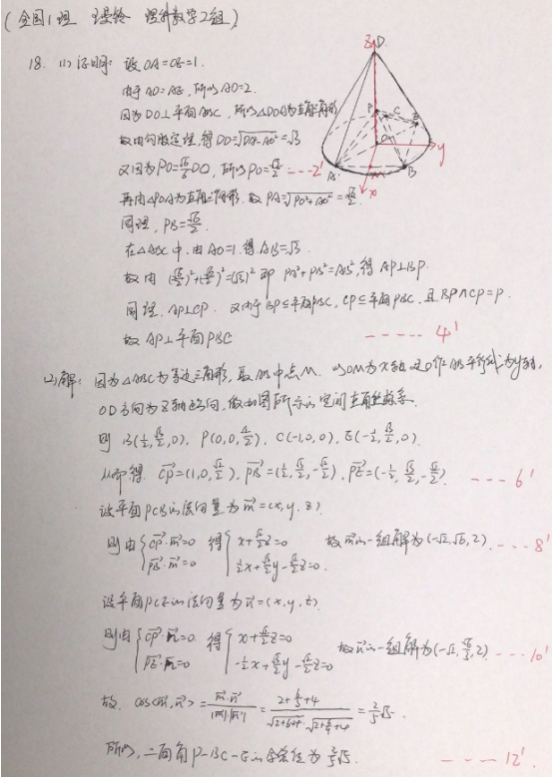 (全国1理 理科数学2组)
18. (1) 证明: 设OA=OE=1.
由于AD=AE, 所以AD=2.
因为DO⊥平面ABC, 所以△DOA为直角三角形
故由勾股定理, 得DO=√DA²-AO²=√3
又因为PO=√6/6DO, 所以PO=√2/2 ---2'
再由△POA为直角三角形. 故PA=√PO²+AO²=√6/2.
同理, PB=√6/2.
在△ABC中, 由AO=1. 得AB=√3.
故由 (√6/2)²+(√6/2)²=(√3)² 即 PA²+PB²=AB², 得AP⊥BP.
同理, AP⊥CP. 又由于BP⊆平面PBC, CP⊆平面PBC, 且BP∩CP=P.
故AP⊥平面PBC ----- 4'
(2)解: 因为△ABC为等边三角形, 取AB中点M. 以OM为x轴, 过O作AB平行线为y轴,
OD方向为z轴方向, 做如图所示的空间直角坐标系.
则 B(1/2,√3/2,0). P(0,0,√2/2). C(-1,0,0). E(-1/2,√3/2,0).
从而得. CP=(1,0,√2/2). PB=(1/2,√3/2,-√2/2). PE=(-1/2,√3/2,-√2/2). ---6'
设平面PCB的法向量为m=(x,y,z).
则由{CP·m=0 PB·m=0 得{x+√2/2z=0 1/2x+√3/2y-√2/2z=0. 故m的一组解为(-√2,√6,2). ---8'
设平面PCE的法向量为n=(x,y,z).
则由{CP·n=0 PE·n=0 得{x+√2/2z=0 -1/2x+√3/2y-√2/2z=0 故n的一组解为(-√2,√6/3,2) ---10'
故. cos<m,n>=m·n/|m||n|=2+6/3+4/√2+6+4·√2+2/3+4=2/5√5.
所以, 二面角P-BC-E的余弦值为2/5√5. ----12'
z
D
P
C
E
O
y
A
M
B
x